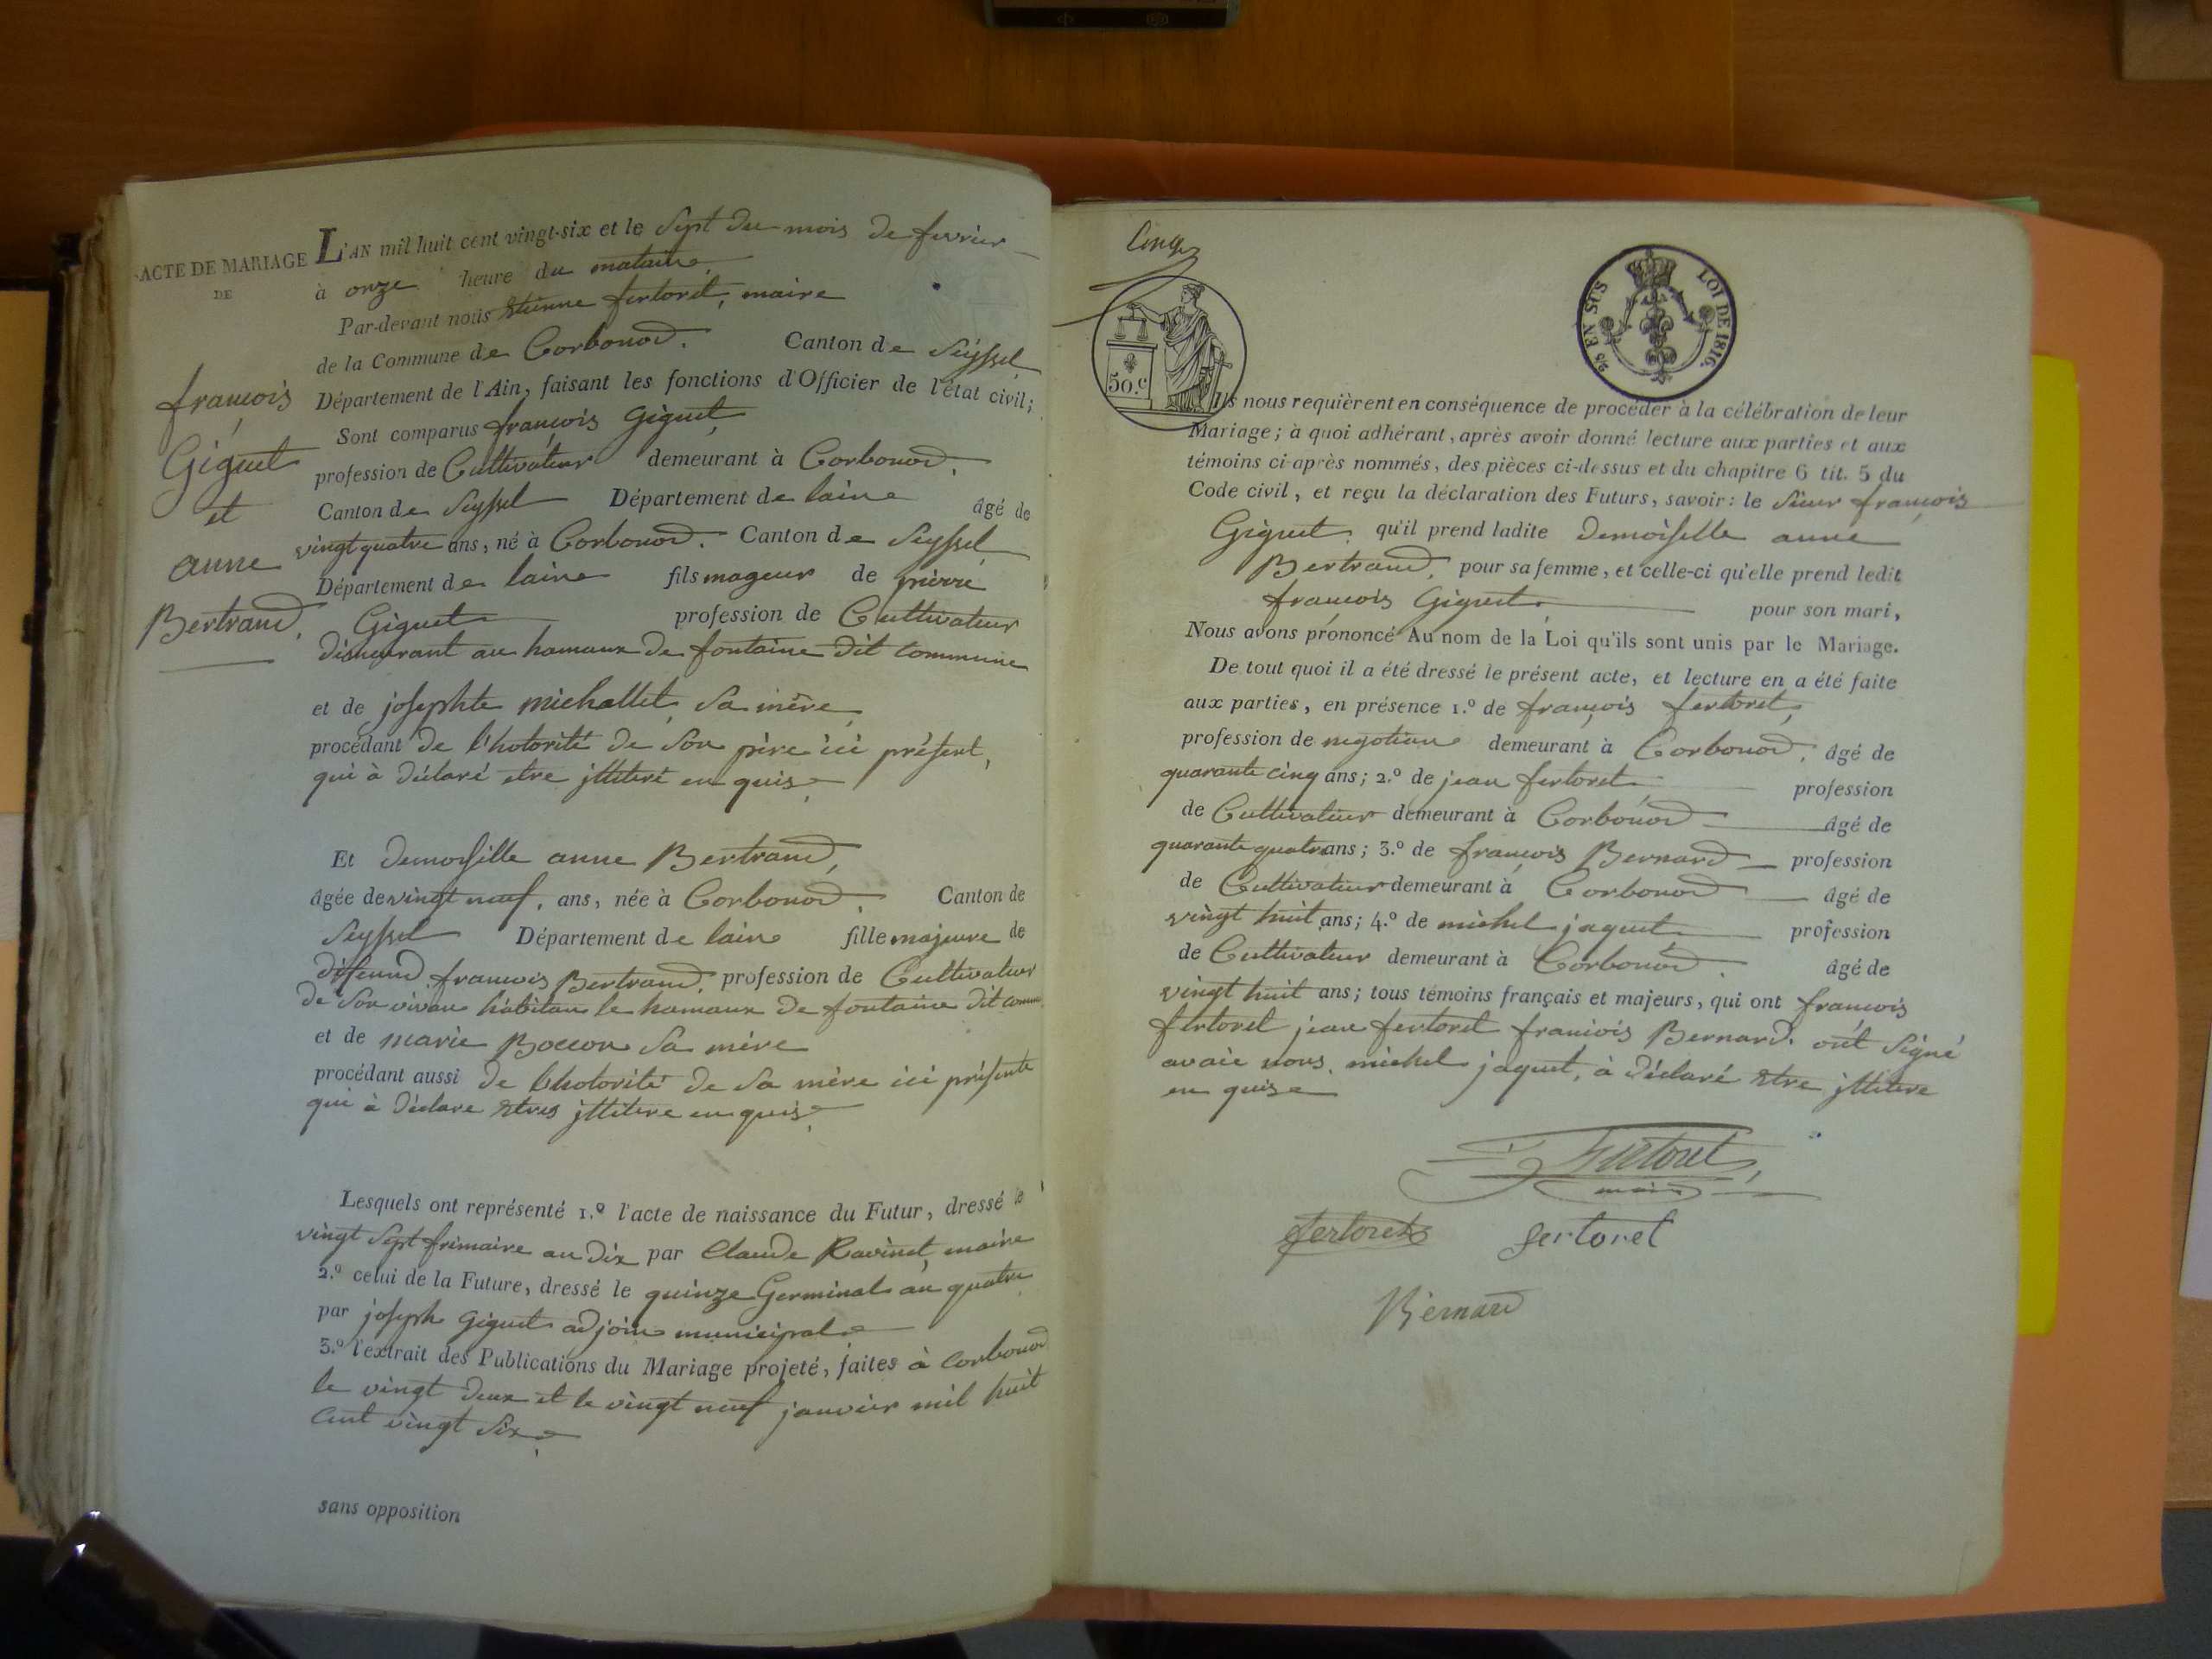 ACTE DE MARIAGE
DE
françois
Giguet
et
anne
Bertrand.
L'AN mil huit cent vingt-six et le Sept du mois de fevrier
à onze heure du matain
Par-devant nous Etienne fertoret, maire
de la Commune de Corbonod. Canton de Seyssel
Département de l'Ain, faisant les fonctions d'Officier de l'état civil;
Sont comparus françois Giguet
profession de Cultivateur demeurant à Corbonod.
Canton de Seyssel Département de laine âgé de
vingt quatre ans, né à Corbonod. Canton de Seyssel
Département de laine fils mageur de pierre
Giguet profession de Cultivateur
demeurant au hamaux de fontaine dit commune
et de josephte michallet, sa mère,
procédant de l'hotorité de son père ici présent,
qui à déclaré etre jlliteré en quis
Et demoiselle anne Bertrand,
âgée de vingt neuf, ans, née à Corbonod. Canton de
Seyssel Département de laine fille majeure de
françois Bertrand, profession de Cultivateur
de son vivan habitan le hamaux de fontaine dit comm.
et de marie Boccon sa mère
procédant aussi de l'hotorité de sa mère ici présente
qui à déclare jllitere en quis
Lesquels ont représenté 1.º l'acte de naissance du Futur, dressé le
vingt Sept frimaire an dix par Claude Ravinet, maire
2.º celui de la Future, dressé le quinze Germinal an quatre
par joseph Giguet adjoin municipal
3.º l'extrait des Publications du Mariage projeté, faites à Corbonod
le vingt deux et le vingt neuf janvier mil huit
Cent vingt Six
sans opposition
Cinq
50.c
25 EN SUS LOI DE 1816.
Ils nous requièrent en conséquence de procéder à la célébration de leur
Mariage; à quoi adhérant, après avoir donné lecture aux parties et aux
témoins ci-après nommés, des pièces ci-dessus et du chapitre 6 tit. 5 du
Code civil, et reçu la déclaration des Futurs, savoir: le Sieur françois
Giguet. qu'il prend ladite demoiselle anne
Bertrand, pour sa femme, et celle-ci qu'elle prend ledit
françois Giguet, pour son mari,
Nous avons prononcé Au nom de la Loi qu'ils sont unis par le Mariage.
De tout quoi il a été dressé le présent acte, et lecture en a été faite
aux parties, en présence 1.º de françois fertoret,
profession de negotian demeurant à Corbonod, âgé de
quarante cinq ans; 2.º de jean fertoret profession
de Cultivateur demeurant à Corbonod âgé de
quarante quatre ans; 3.º de françois Bernard profession
de Cultivateur demeurant à Corbonod âgé de
vingt huit ans; 4.º de michel jaquet profession
de Cultivateur demeurant à Corbonod. âgé de
vingt huit ans; tous témoins français et majeurs, qui ont françois
fertoret jean fertoret françois Bernard. ont signé
avaic nous, michel jaquet, à déclaré Etre jllitere
en quis
Fertoret,
maire
fertoret fertoret
Bernard